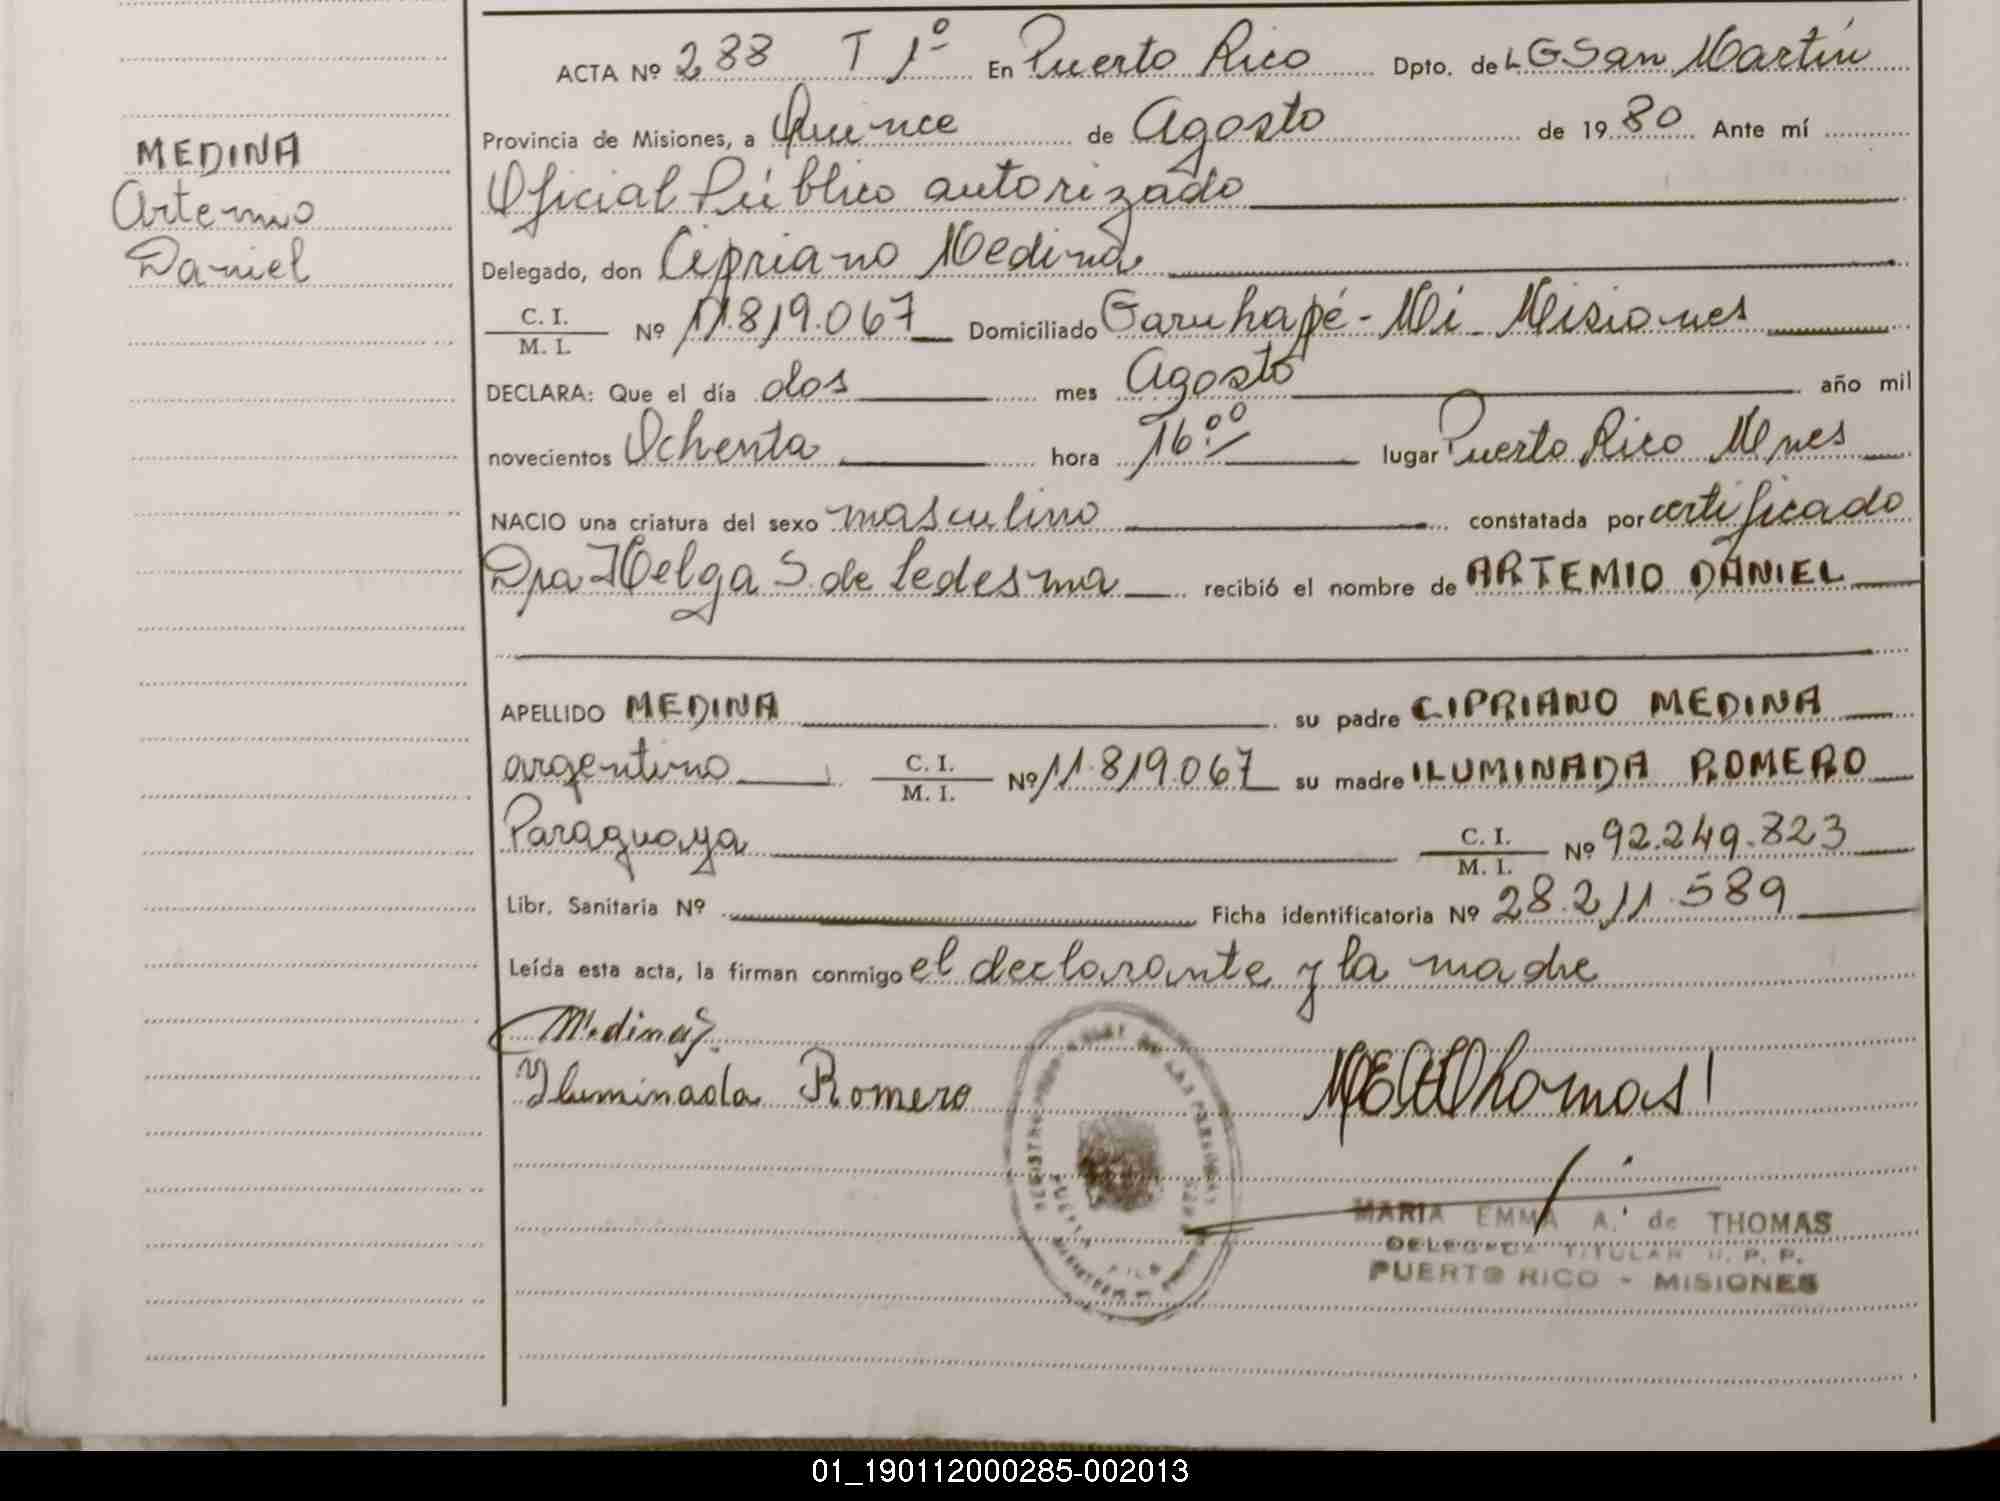 ACTA Nº 288 T 1º En Puerto Rico Dpto. de L G San Martín
MEDINA
Artemio
Daniel
Provincia de Misiones, a Quince de Agosto de 19 80 Ante mí
Oficial Público autorizado
Delegado, don Cipriano Medina
C. I.
M. I. Nº 11.819.067 Domiciliado Garuhapé-Mi-Misiones
DECLARA: Que el día dos mes Agosto año mil
novecientos Ochenta hora 16:00 lugar Puerto Rico Mnes
NACIO una criatura del sexo masculino constatada por certificado
Dra Helga S. de Ledesma recibió el nombre de ARTEMIO DANIEL
APELLIDO MEDINA su padre CIPRIANO MEDINA
argentino C. I.
M. I. Nº 11.819.067 su madre ILUMINADA ROMERO
Paraguaya C. I.
M. I. Nº 92.249.823
Libr. Sanitaria Nº Ficha identificatoria Nº 28.211.589
Leída esta acta, la firman conmigo el declarante y la madre
Medina
Iluminada Romero
MARIA EMMA A. de THOMAS
DELEGADA TITULAR R. P. P.
PUERTO RICO - MISIONES
01_190112000285-002013